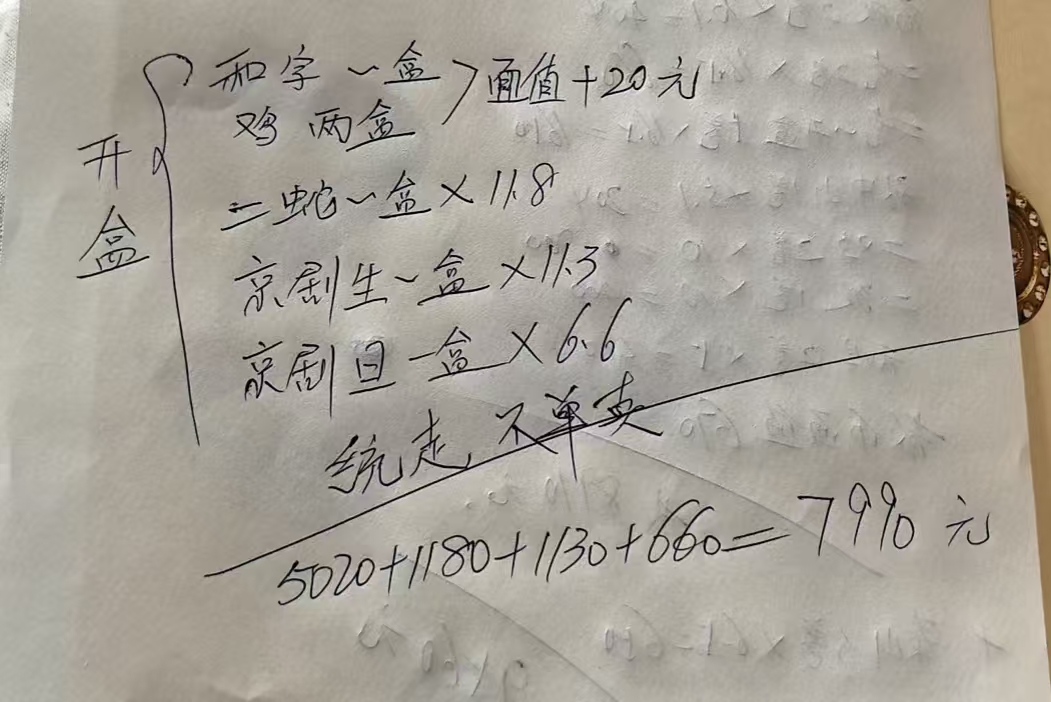 开盒
和字一盒 > 面值+20元
鸡两盒
二蛇一盒×11.8
京剧生一盒×11.3
京剧旦一盒×6.6
统走,不单卖
5020+1180+1130+660=7990元